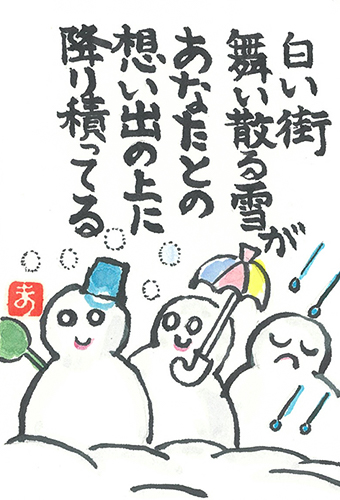 白い街
舞い散る雪が
あなたとの
想い出の上に
降り積ってる
あ